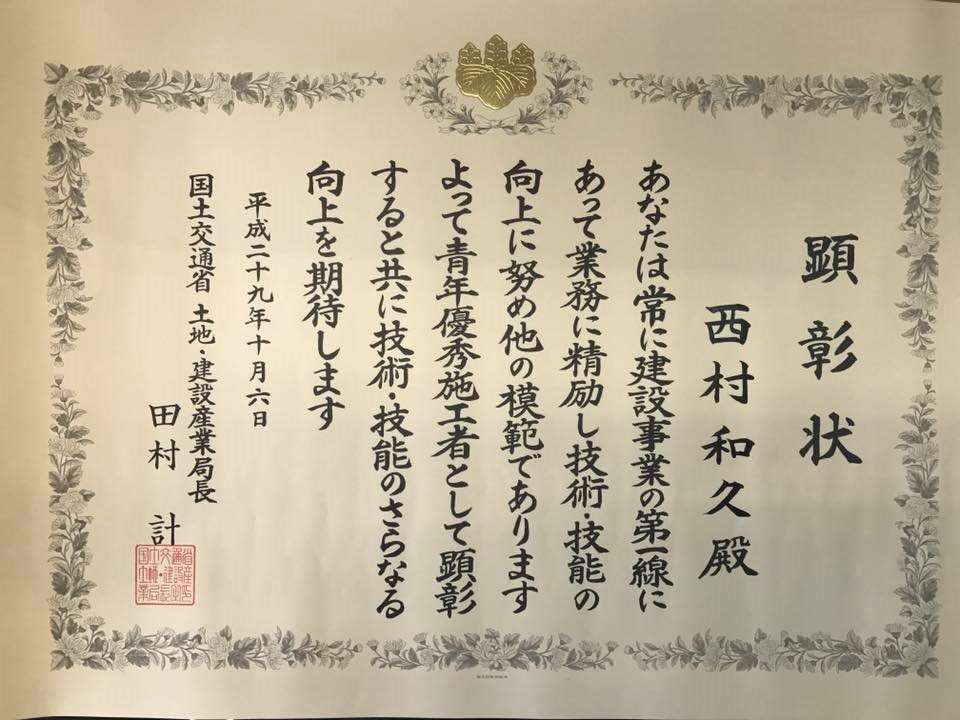 顕彰状
西村和久殿
あなたは常に建設事業の第一線に
あって業務に精励し技術・技能の
向上に努め他の模範であります
よって青年優秀施工者として顕彰
すると共に技術・技能のさらなる
向上を期待します
平成二十九年十月六日
国土交通省 土地・建設産業局長
田村 計